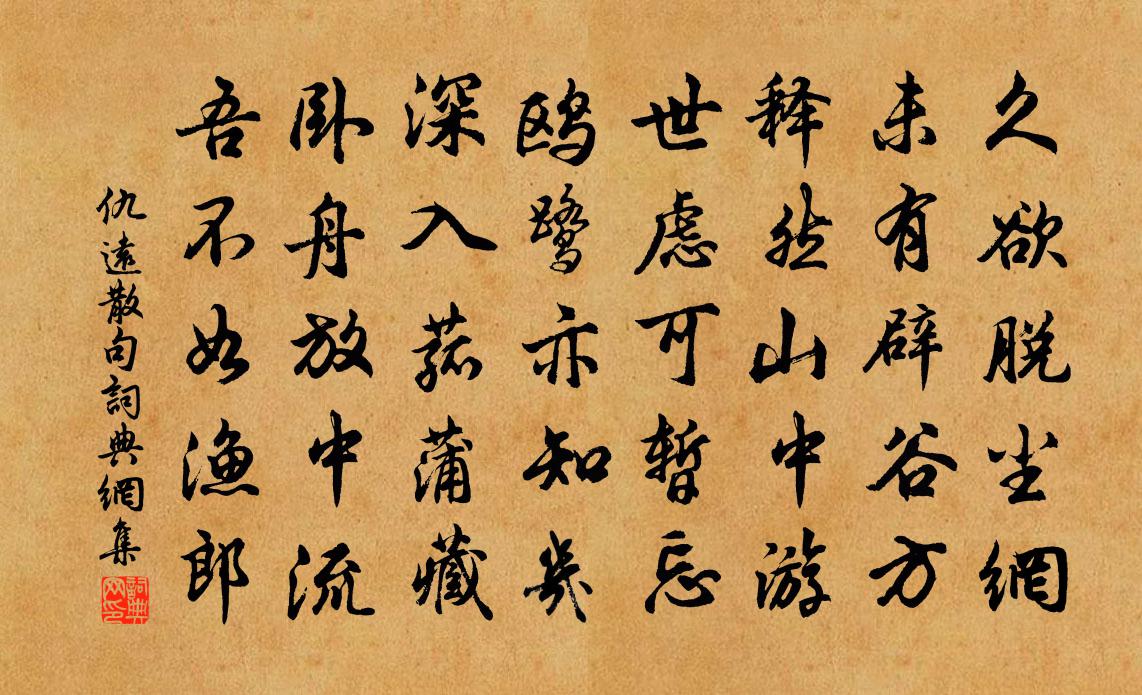 久欲脱尘網
未有辟谷方
释然山中游
世虑可暂忘
鸥鹭亦知几
深入菰蒲藏
卧舟放中流
吾不如渔郎
仇遠散句詞典網集
詞典网印